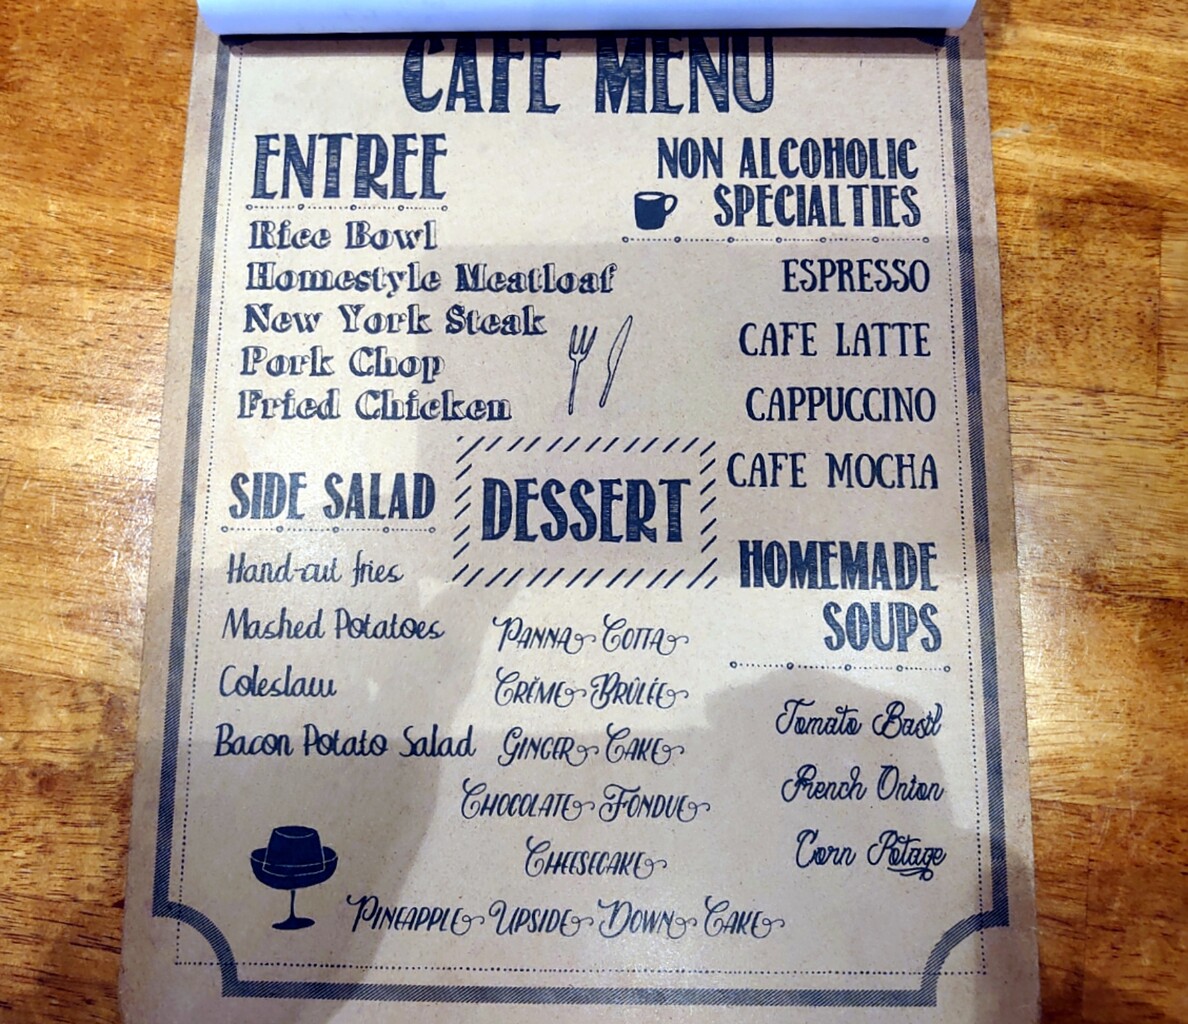 CAFE MENU
ENTREE
Rice Bowl
Homestyle Meatloaf
New York Steak
Pork Chop
Fried Chicken
NON ALCOHOLIC
SPECIALTIES
ESPRESSO
CAFE LATTE
CAPPUCCINO
CAFE MOCHA
SIDE SALAD
Hand-cut fries
Mashed Potatoes
Coleslaw
Bacon Potato Salad
DESSERT
PANNA COTTA
CRÈME BRÛLÉE
GINGER CAKE
CHOCOLATE FONDUE
CHEESECAKE
PINEAPPLE UPSIDE DOWN CAKE
HOMEMADE
SOUPS
Tomato Basil
French Onion
Corn Potage